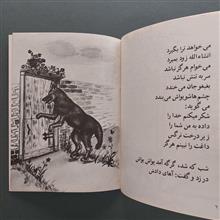 می خواهد ترا بگیرد
انشاء الله زود بمیرد
می خوام هرگز نباشد
سر به تنش نباشد
بغبغوجان می خندد
چشم هایش را می بندد
شکر میکنم خدا را
داده به من شما را
زرد درخت نرگس
داغت را نبینم هرگز
شب که شد، گرگه آمد یواش یواش
در زد و گفت: آهای دادش